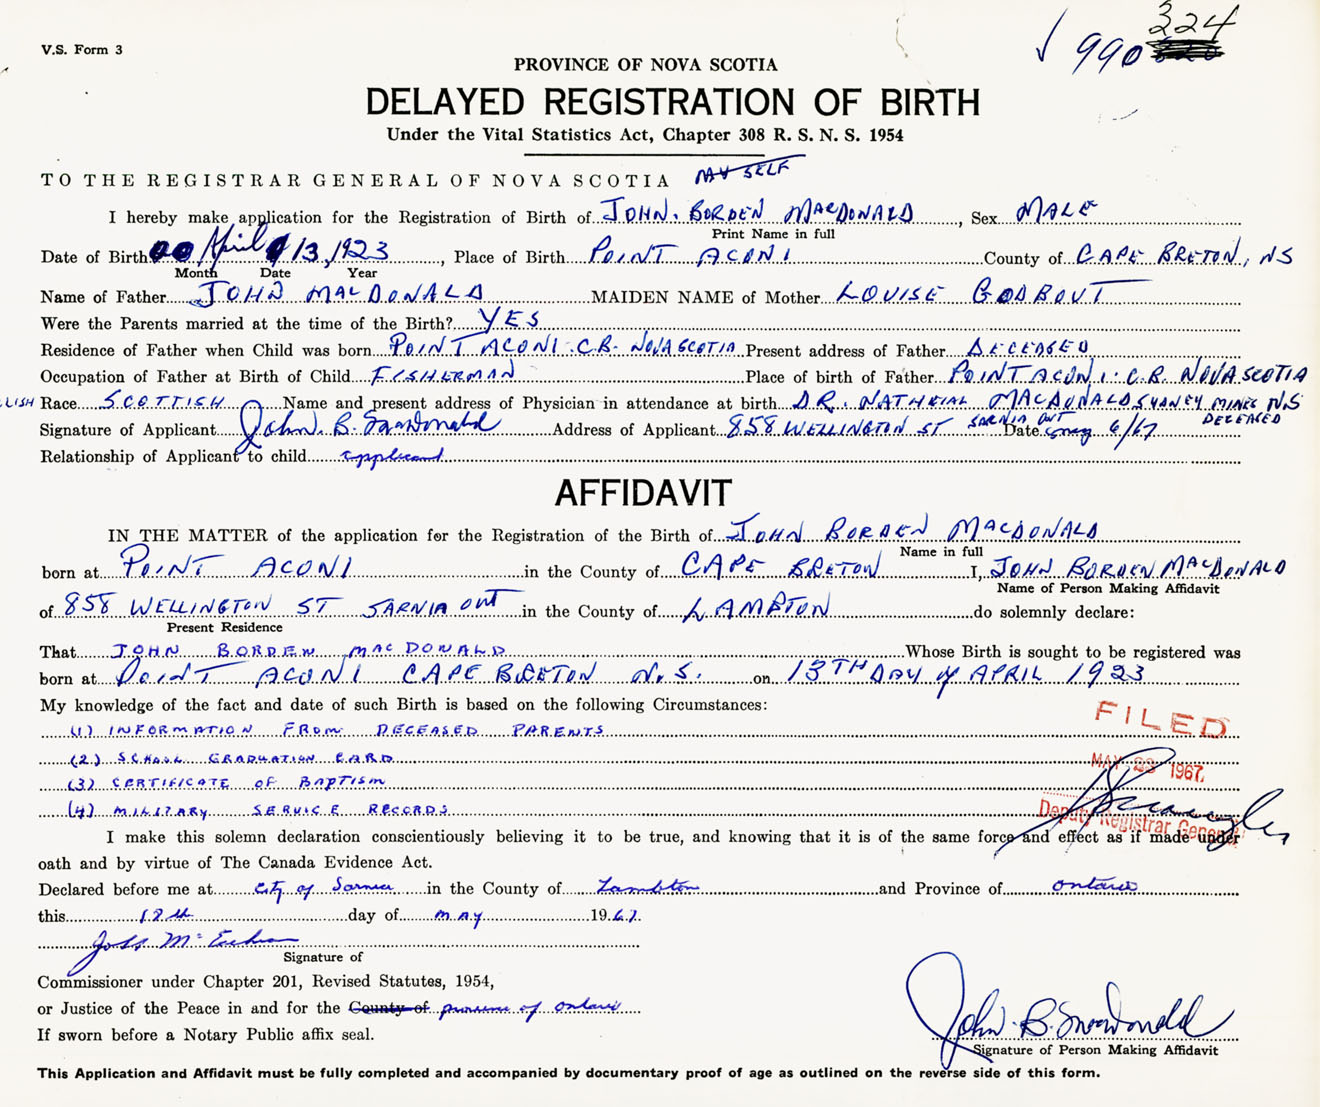 V.S. Form 3
990 324
PROVINCE OF NOVA SCOTIA
DELAYED REGISTRATION OF BIRTH
Under the Vital Statistics Act, Chapter 308 R. S. N. S. 1954
TO THE REGISTRAR GENERAL OF NOVA SCOTIA MY SELF
I hereby make application for the Registration of Birth of JOHN. BORDEN MACDONALD, Sex MALE
Print Name in full
Date of Birth April 13, 1923, Place of Birth POINT ACONI County of CAPE BRETON, NS
Month Date Year
Name of Father JOHN MACDONALD MAIDEN NAME of Mother LOUISE GODBOUT
Were the Parents married at the time of the Birth? YES
Residence of Father when Child was born POINT ACONI. C.B. NOVA SCOTIA Present address of Father DECEASED
Occupation of Father at Birth of Child FISHERMAN Place of birth of Father POINT ACONI. C.B. NOVA SCOTIA
LISH Race SCOTTISH Name and present address of Physician in attendance at birth DR. NATHEIAL MACDONALD SYDNEY MINES N.S DECEASED
Signature of Applicant John. B. MacDonald Address of Applicant 858 WELLINGTON ST SARNIA ONT Date May 6/67
Relationship of Applicant to child applicant
AFFIDAVIT
IN THE MATTER of the application for the Registration of the Birth of JOHN BORDEN MACDONALD
Name in full
born at POINT ACONI in the County of CAPE BRETON I, JOHN BORDEN MACDONALD
Name of Person Making Affidavit
of 858 WELLINGTON ST SARNIA ONT in the County of LAMBTON do solemnly declare:
Present Residence
That JOHN BORDEN MACDONALD Whose Birth is sought to be registered was
born at POINT ACONI CAPE BRETON N.S. on 13TH DAY of APRIL 1923
My knowledge of the fact and date of such Birth is based on the following Circumstances:
(1) INFORMATION FROM DECEASED PARENTS
(2) SCHOOL GRADUATION CARD
(3) CERTIFICATE OF BAPTISM
(4) MILITARY SERVICE RECORDS
FILED
MAY 23 1967
Deputy Registrar General
I make this solemn declaration conscientiously believing it to be true, and knowing that it is of the same force and effect as if made under
oath and by virtue of The Canada Evidence Act.
Declared before me at City of Sarnia in the County of Lambton and Province of Ontario
this 18th day of May 1967.
Signature of
Commissioner under Chapter 201, Revised Statutes, 1954,
or Justice of the Peace in and for the County of province of Ontario
If sworn before a Notary Public affix seal.
John. B. MacDonald
Signature of Person Making Affidavit
This Application and Affidavit must be fully completed and accompanied by documentary proof of age as outlined on the reverse side of this form.